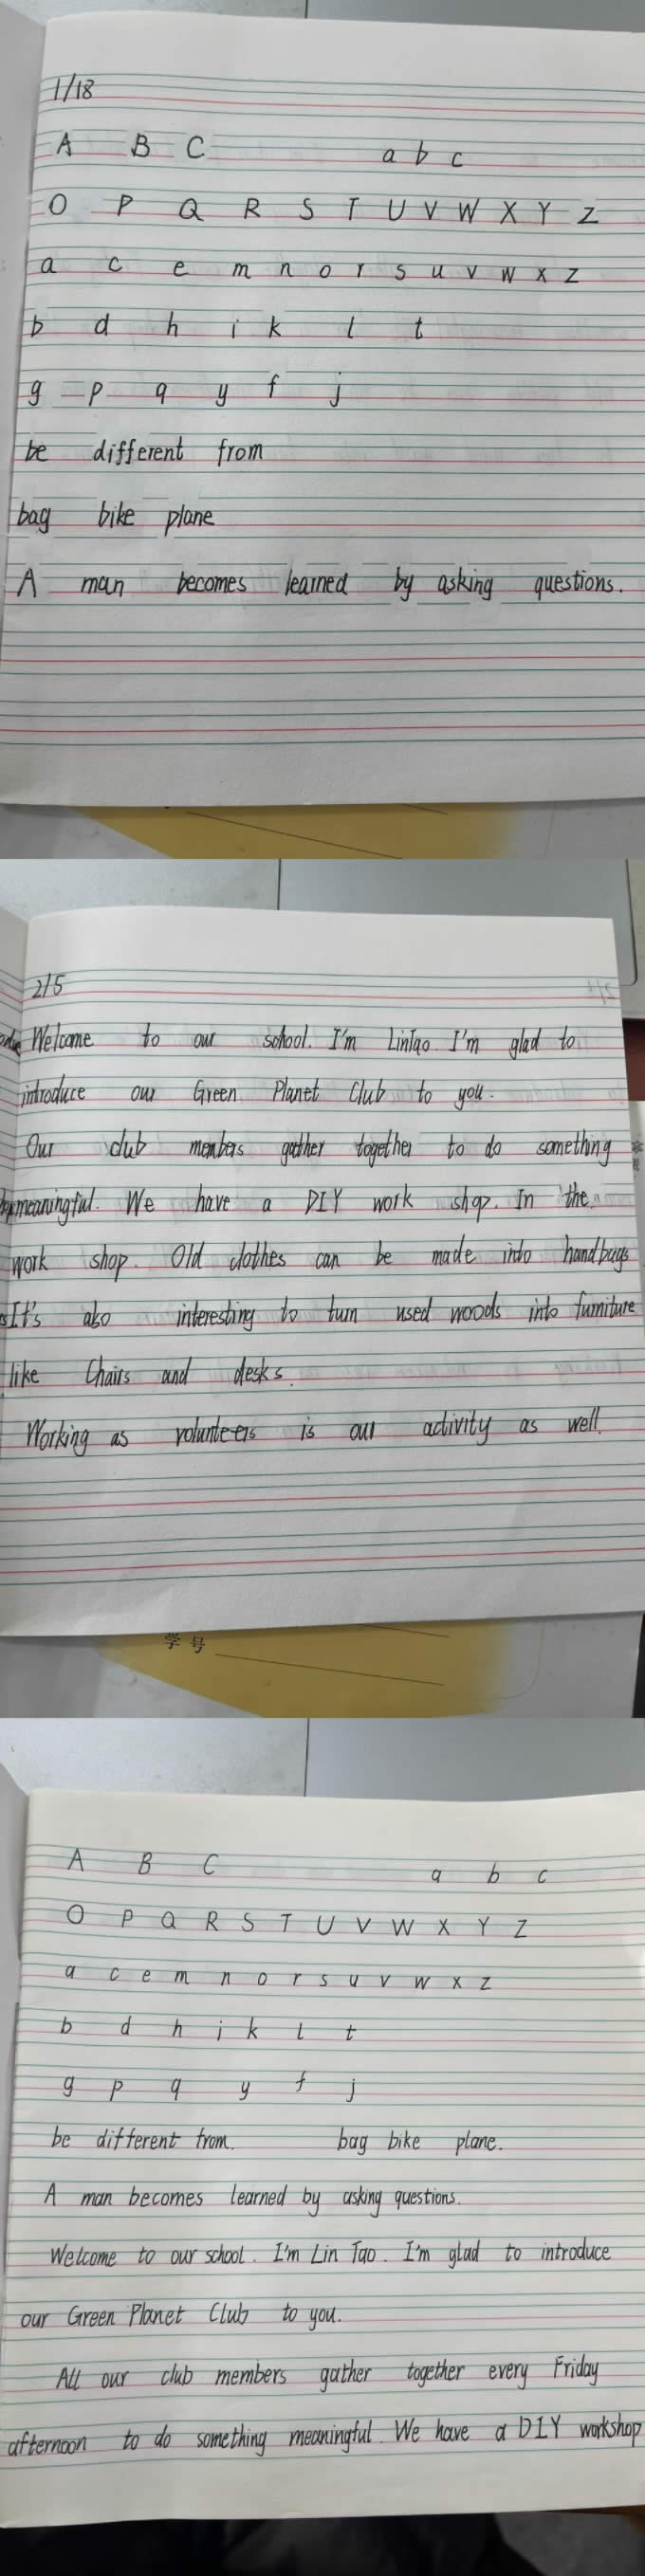 1/18
A B C a b c
O P Q R S T U V W X Y Z
a c e m n o r s u v w x z
b d h i k l t
g p q y f j
be different from
bag bike plane
A man becomes learned by asking questions.
2/5
Welcome to our school. I'm LinTao. I'm glad to
introduce our Green Planet Club to you.
Our club members gather together to do something
meaningful. We have a DIY work shop. In the
work shop. Old clothes can be made into handbags
It's also interesting to turn used woods into furniture
like Chairs and desks.
Working as volunteers is our activity as well.
学号
A B C a b c
O P Q R S T U V W X Y Z
a c e m n o r s u v w x z
b d h i k l t
g p q y f j
be different from. bag bike plane.
A man becomes learned by asking questions.
Welcome to our school. I'm Lin Tao. I'm glad to introduce
our Green Planet Club to you.
All our club members gather together every Friday
afternoon to do something meaningful. We have a DIY workshop